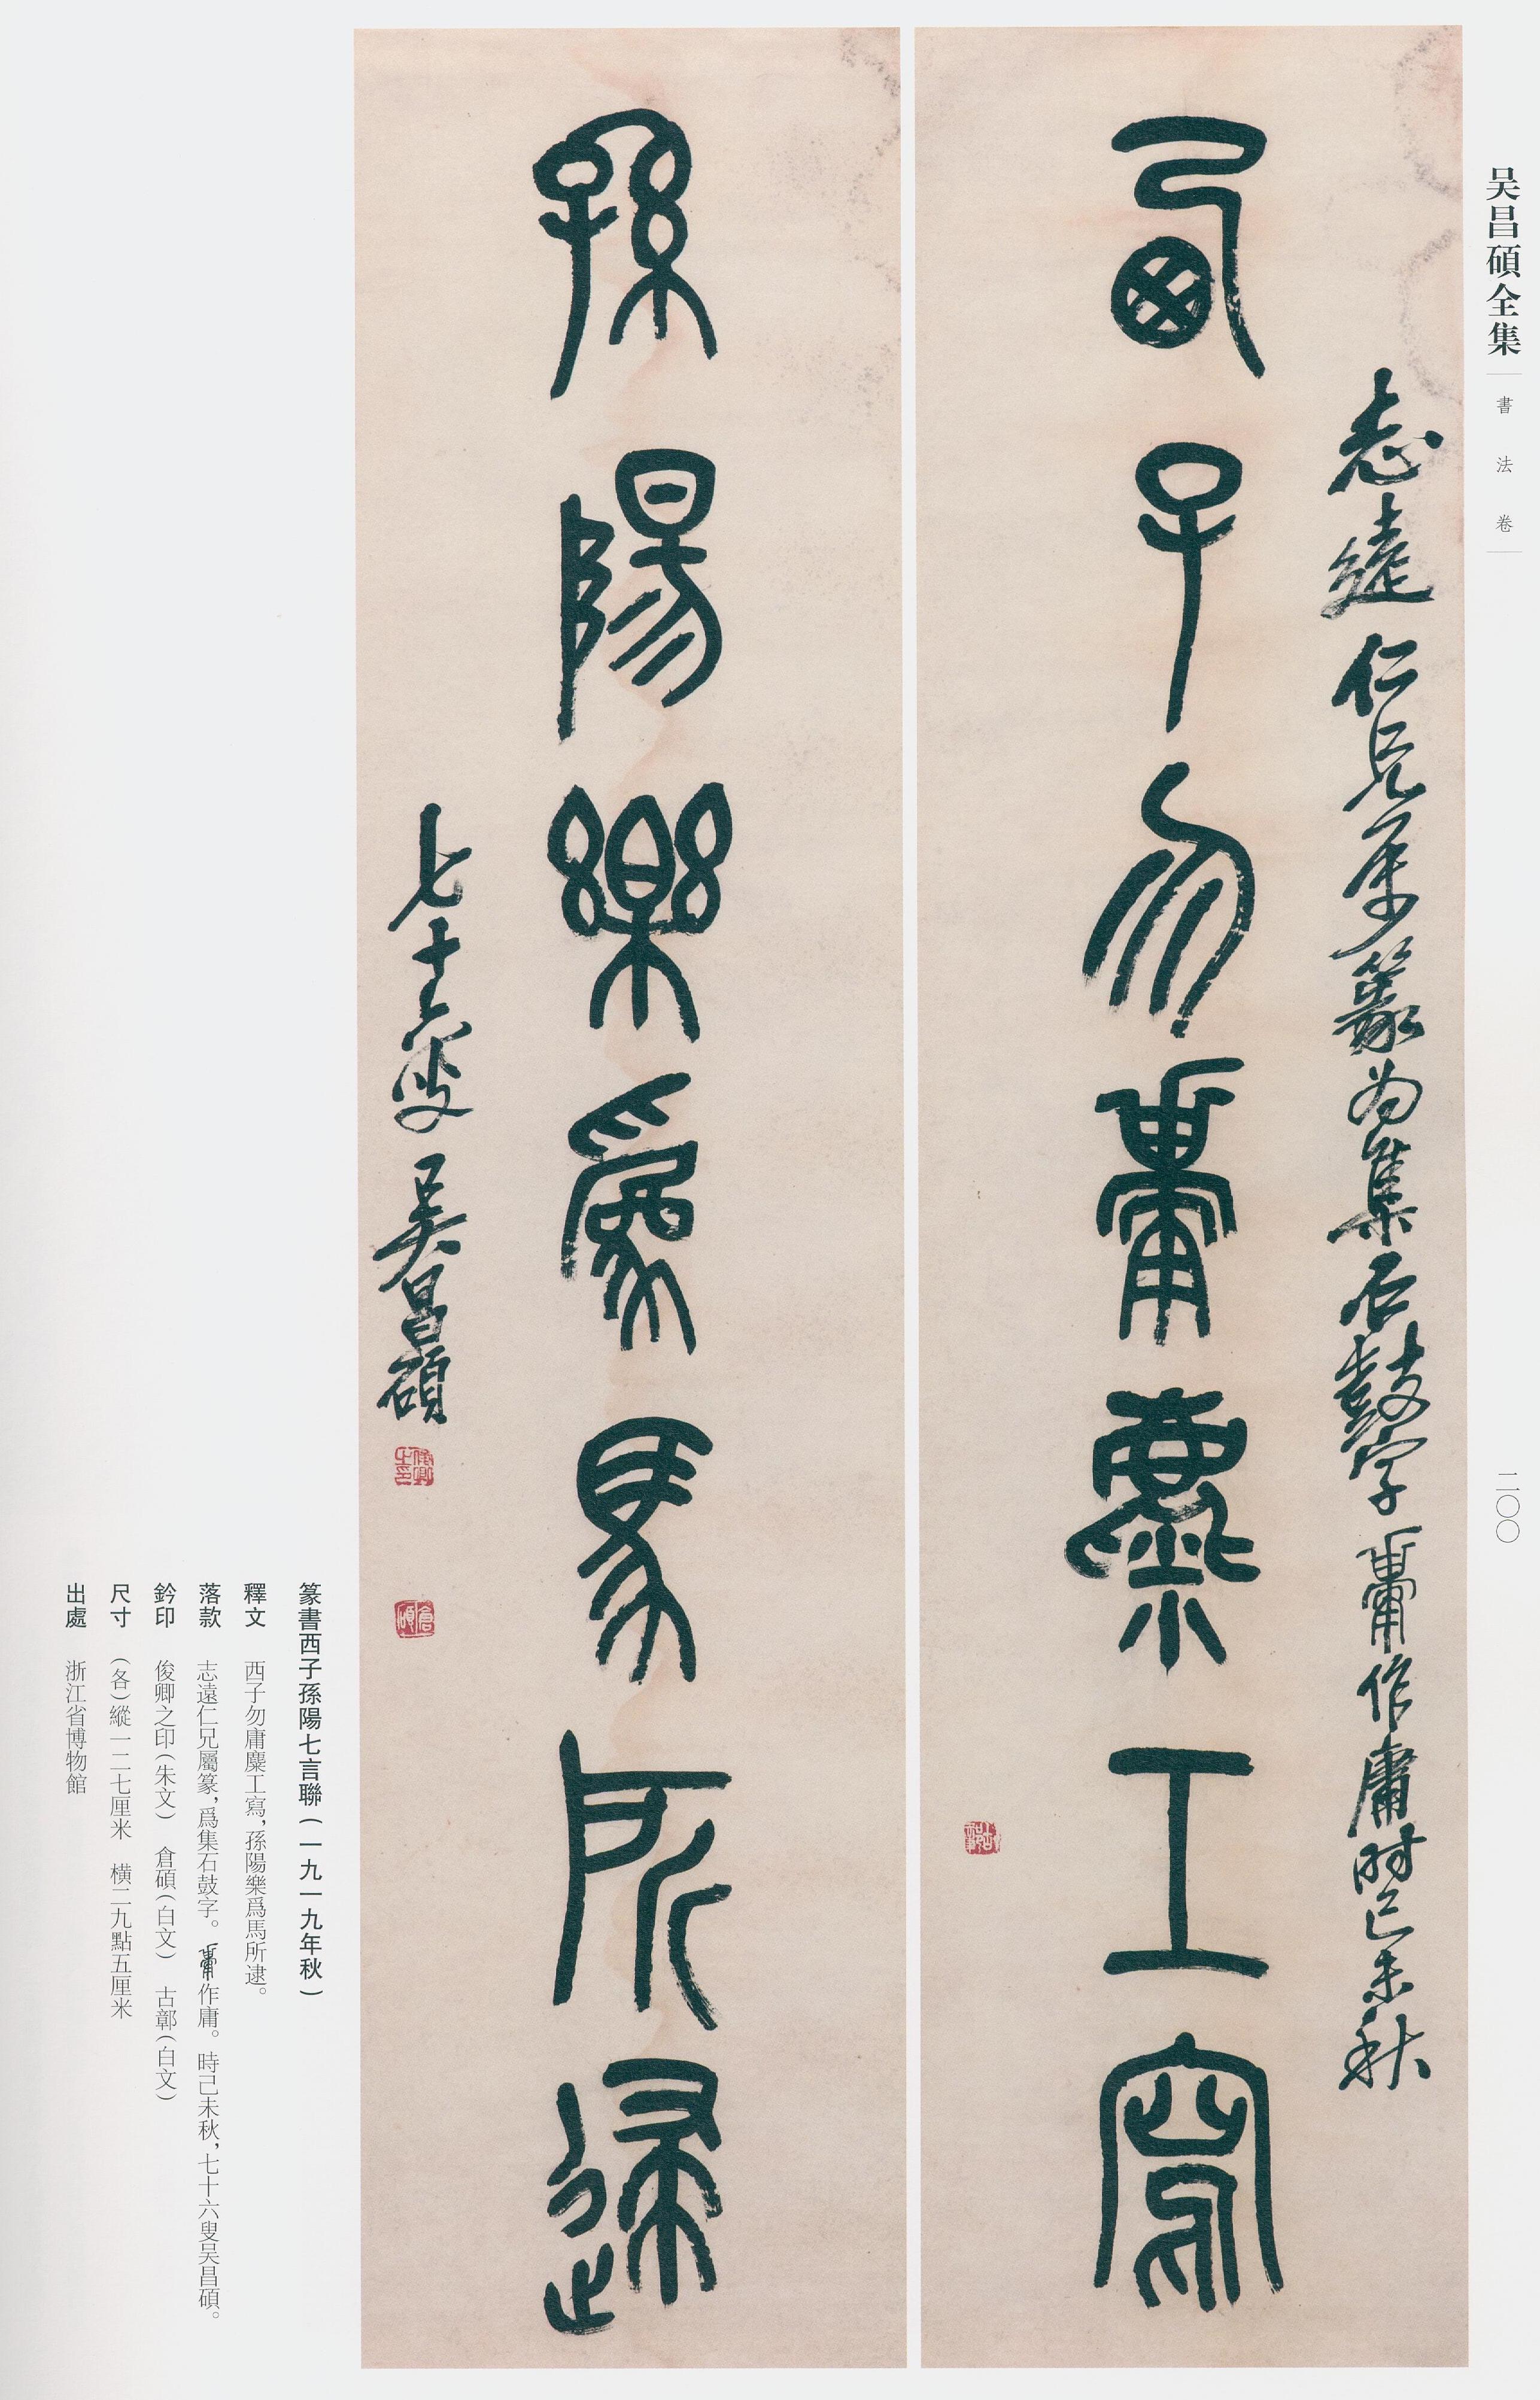 吴昌碩全集
書法卷
二〇〇
志遠仁兄屬篆為集石鼓字𩫏作庸時己未秋
西子勿庸麋工寫
孫陽樂爲馬所逮
七十六叟吴昌碩
俊卿之印
倉碩
古鄣
篆書西子孫陽七言聯（一九一九年秋）
釋文 西子勿庸麋工寫，孫陽樂爲馬所逮。
落款 志遠仁兄屬篆，爲集石鼓字。𩫏作庸。時己未秋，七十六叟吴昌碩。
鈐印 俊卿之印（朱文） 倉碩（白文） 古鄣（白文）
尺寸 （各）縱一二七厘米 橫二九點五厘米
出處 浙江省博物館